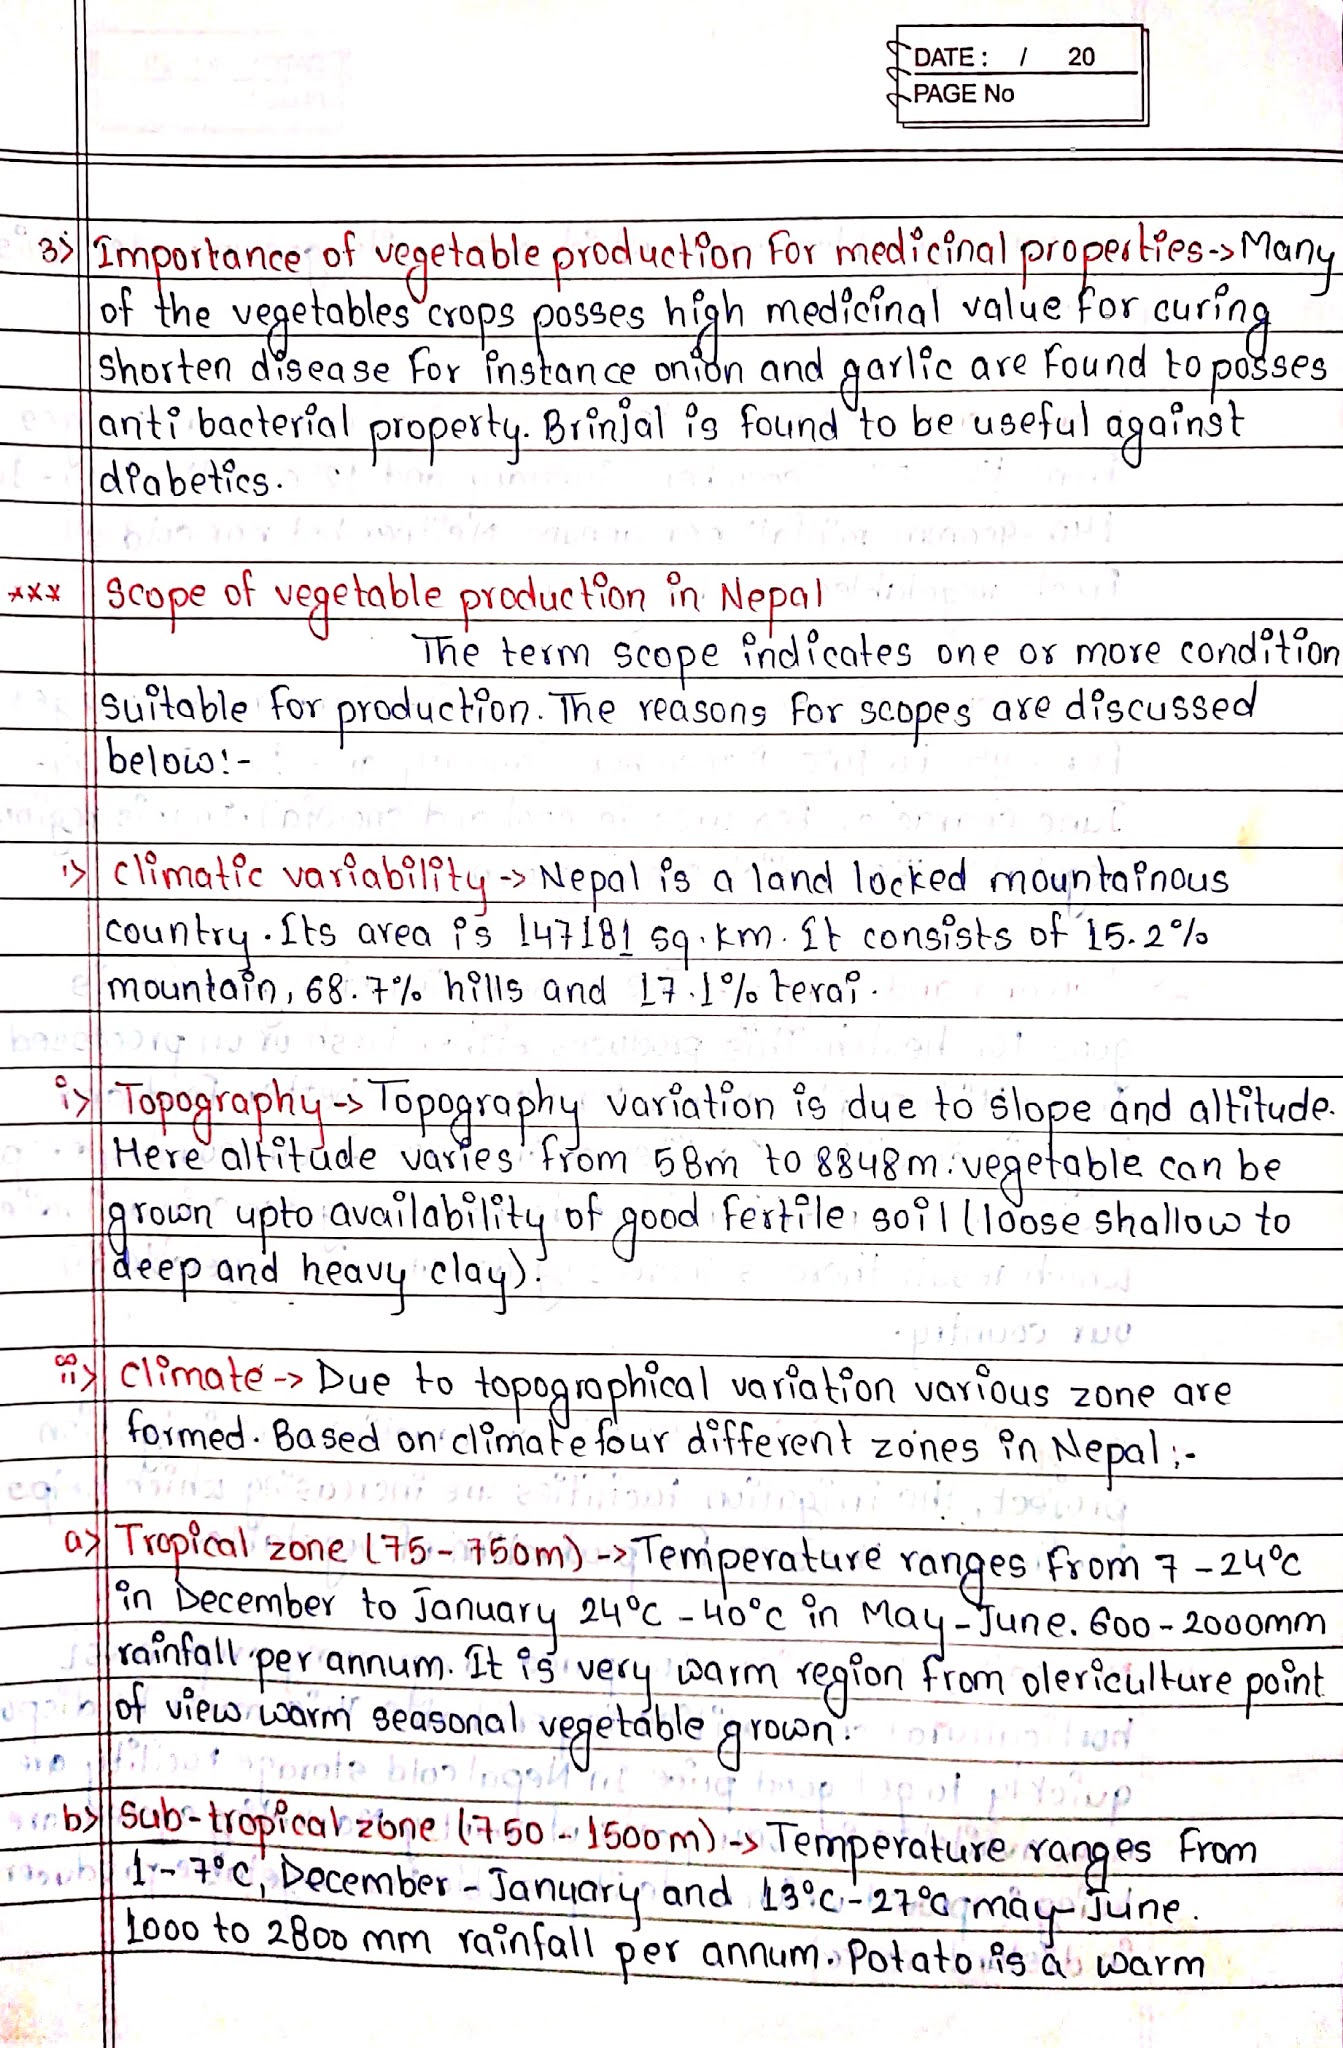 DATE : / 20
PAGE No
3> Importance of vegetable production for medicinal properties-> Many
of the vegetables crops posses high medicinal value for curing
shorten disease for instance onion and garlic are found to posses
anti bacterial property. Brinjal is found to be useful against
diabetics.
*** Scope of vegetable production in Nepal
The term scope indicates one or more condition
suitable for production. The reasons for scopes are discussed
below:-
i> climatic variability -> Nepal is a land locked mountainous
country. Its area is 147181 sq.km. It consists of 15.2%
mountain, 68.7% hills and 17.1% terai.
i> Topography -> Topography variation is due to slope and altitude.
Here altitude varies from 58m to 8848m. vegetable can be
grown upto availability of good fertile soil (loose shallow to
deep and heavy clay).
ii> climate -> Due to topographical variation various zone are
formed. Based on climate four different zones in Nepal :-
a> Tropical zone (75-750m) -> Temperature ranges from 7-24°C
in December to January 24°C-40°C in May-June. 600-2000mm
rainfall per annum. It is very warm region from olericulture point
of view warm seasonal vegetable grown.
b> Sub-tropical zone (750-1500m) -> Temperature ranges from
1-7°C, December-January and 13°C-27°C may-June.
1000 to 2800 mm rainfall per annum. Potato is a warm